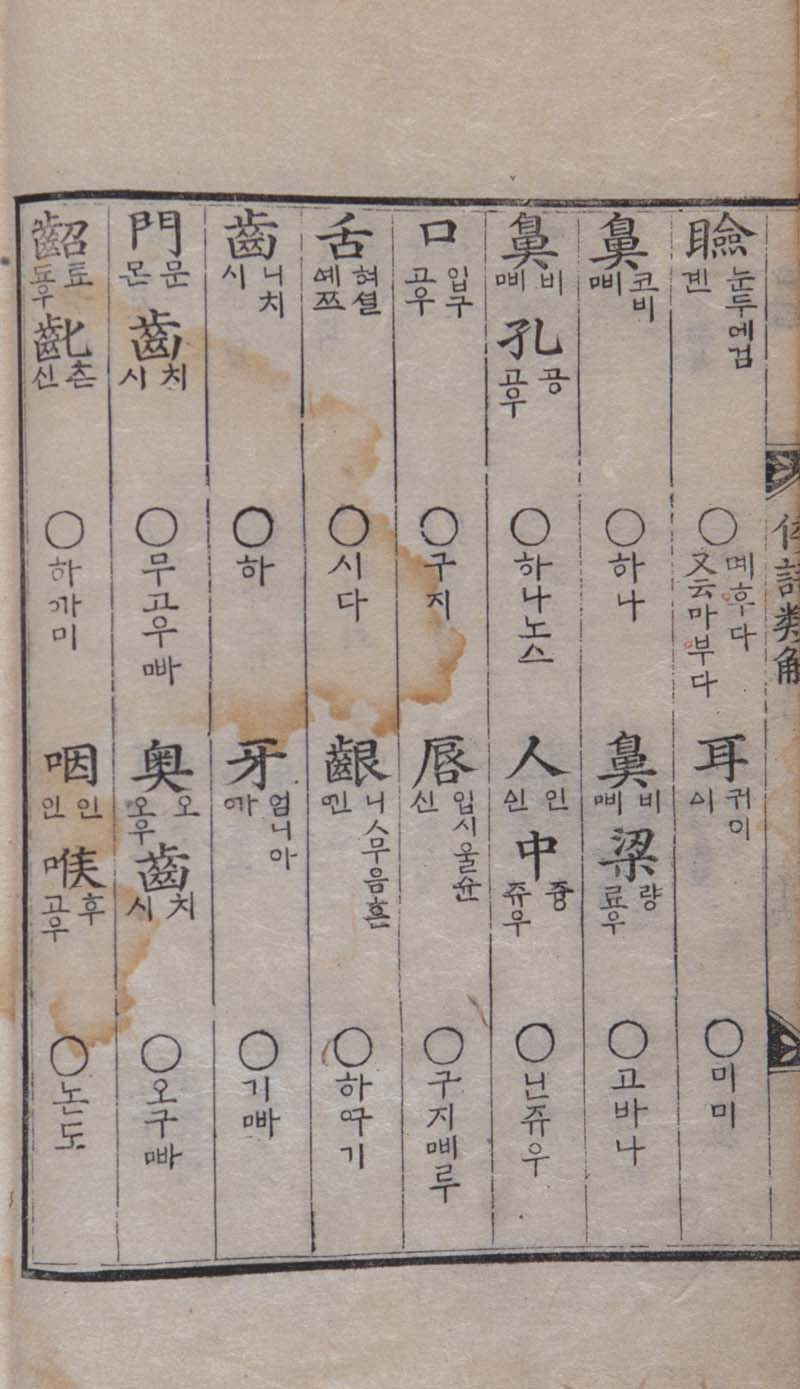 倭語類解
瞼 눈두에검 겐 ○몌후다 又云마부다 耳 귀이 ᅀᅵ ○미미
鼻 코비 ᄜᅵ ○하나 鼻 비 ᄜᅵ 梁 량 료우 ○고바나
鼻 비 ᄜᅵ 孔 공 고우 ○하나노스 人 인 ᅀᅵᆫ 中 즁 쥬우 ○닌쥬우
口 입구 고우 ○구지 唇 입시울슌 신 ○구지ᄜᅵ루
舌 혀셜 셰쯔 ○시다 齦 니스무음흔 ᅁᅵᆫ ○하ᅁᅮ기
齒 니치 시 ○하 牙 엄니아 ᅁᅡ ○기ᄜᅡ
門 문 몬 齒 치 시 ○무고우ᄜᅡ 奧 오 오우 齒 치 시 ○오구ᄜᅡ
齠 툐 됴우 齔 츤 신 ○하ᅁᅡ미 咽 인 인 喉 후 고우 ○논도